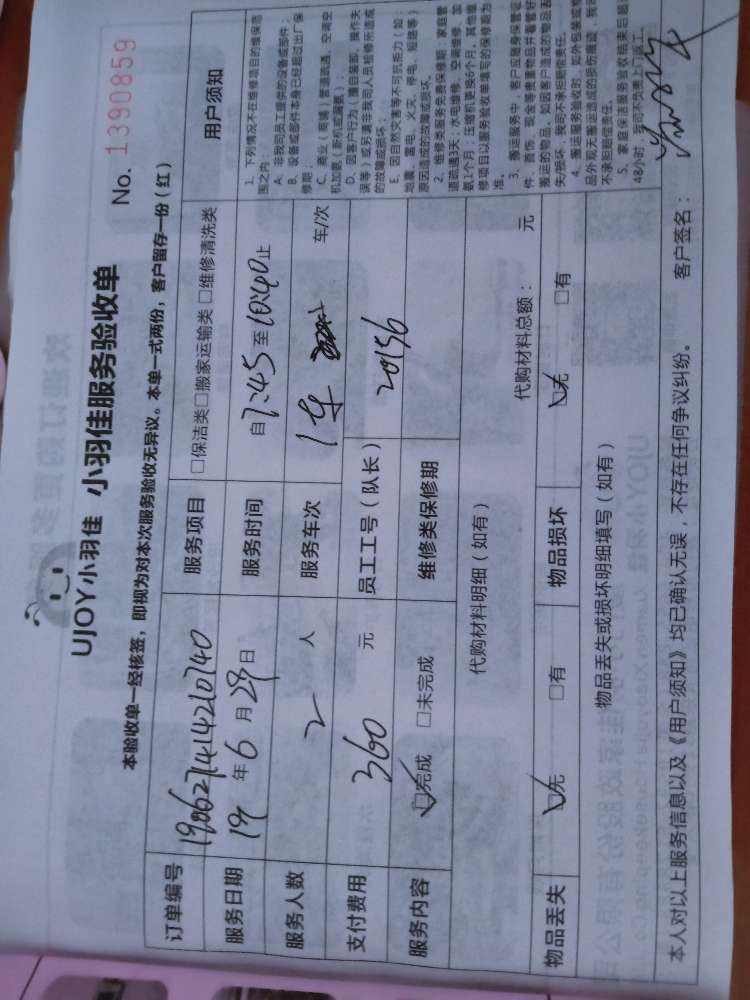 UJOY小羽佳 小羽佳服务验收单 No. 1390859
本验收单一经核签，即视为对本次服务验收无异议。本单一式两份，客户留存一份（红）
订单编号 服务项目 □保洁类□搬家运输类 □维修清洗类 用户须知
服务日期 19 年 6 月 29 日 服务时间 自 7:45 至 10:40 止
服务人数 2 人 服务车次 1车 车/次
支付费用 360 元 员工工号（队长） 20156
服务内容 ☑完成 □未完成 维修类保修期
1、下列情况不在维修项目的维保范
围之内：
A、非我司员工提供的设备或部件；
B、设备或部件本身已经超过出厂保
修期；
C、商业（商铺）管道疏通、空调空
机加氨（新机或漏氨）；
D、因客户行为（擅自装卸、操作失
误等）或另请非我司人员检修所造成
的故障或损坏；
E、因自然灾害等不可抗拒力（如：
地震、雷电、火灾、停电、短路等）
原因造成的故障或损坏。
2、维修类服务免费保修期：家庭管
道疏通3天；水电维修、空调维修、加
氨1个月；压缩机更换6个月，其他维
修项目以服务验收单填写的保修期为
准。
3、搬运服务中，客户应自身保管证
件、首饰、现金等贵重物品并看管好
搬运的物品，如因客户造成的物品丢
失/损坏，我司不承担赔偿责任。
4、搬运服务验收时，如外包装或物
品外观无搬运造成的损伤痕迹，我司
不承担赔偿责任。
5、家庭保洁服务验收结束后超过
48小时，我司不负责上门返工。
代购材料明细（如有） 代购材料总额： 元
物品丢失 ☑无 □有 物品损坏 ☑无 □有
物品丢失或损坏明细填写（如有）
本人对以上服务信息以及《用户须知》均已确认无误，不存在任何争议纠纷。 客户签名：